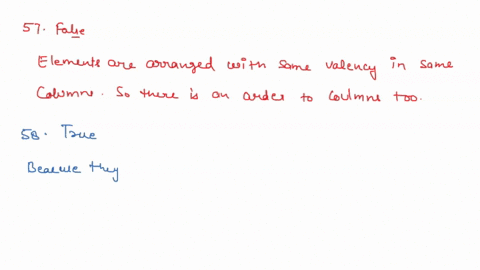 57. False
Elements are arranged with same valency in same
Columns. So there is an order to coulmns too.
58. True
Because they